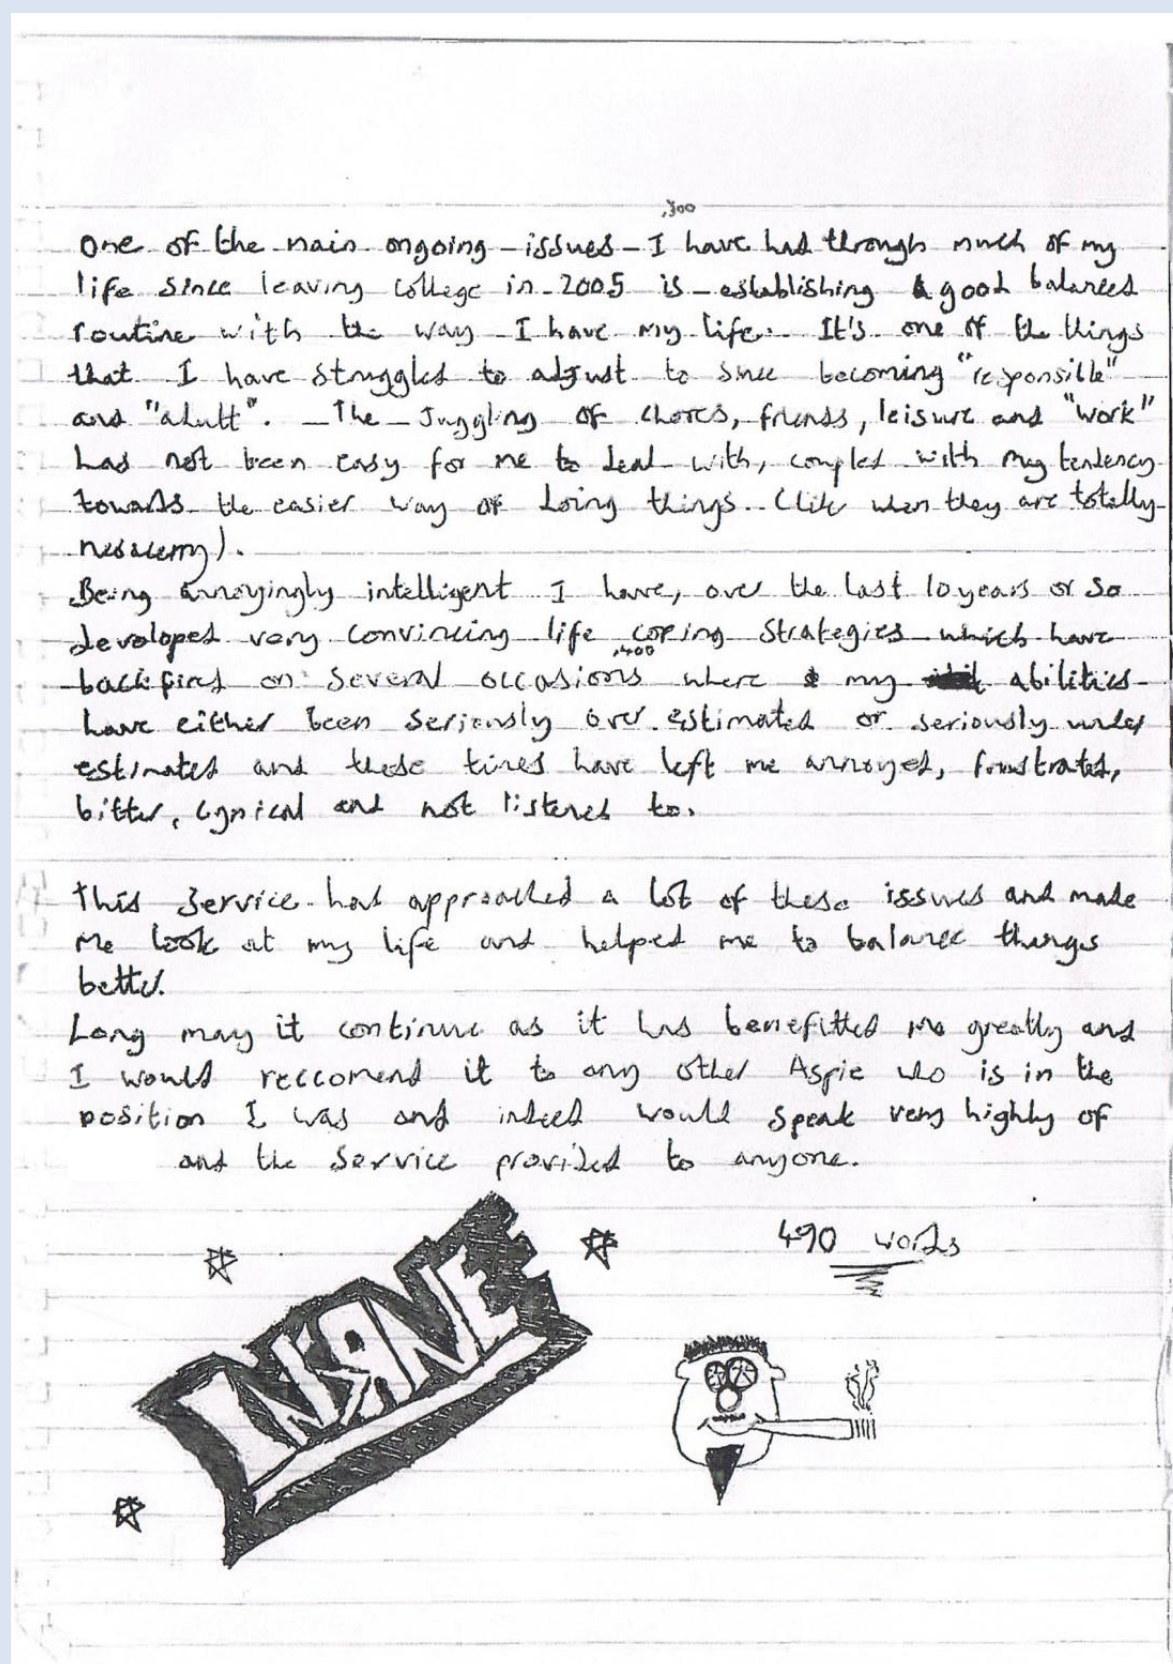 ,300
One of the main ongoing issues I have had through much of my
life since leaving college in 2005 is establishing a good balanced
routine with the way I have my life. It's one of the things
that I have struggled to adjust to since becoming "responsible"
and "adult". The Juggling of chores, friends, leisure and "work"
has not been easy for me to deal with, coupled with my tendency
towards the easier way of doing things. (like when they are totally
).
Being annoyingly intelligent I have, over the last 10 years or so
developed very convincing life coping strategies which have
,400
backfired on several occasions where my abilities
have either been seriously over estimated or seriously under
estimated and these times have left me annoyed, frustrated,
bitter, cynical and not listened to.
This Service has approached a lot of these issues and made
me look at my life and helped me to balance things
better.
Long may it continue as it has benefitted me greatly and
I would reccomend it to any other Aspie who is in the
position I was and indeed would speak very highly of
and the service provided to anyone.
490 words